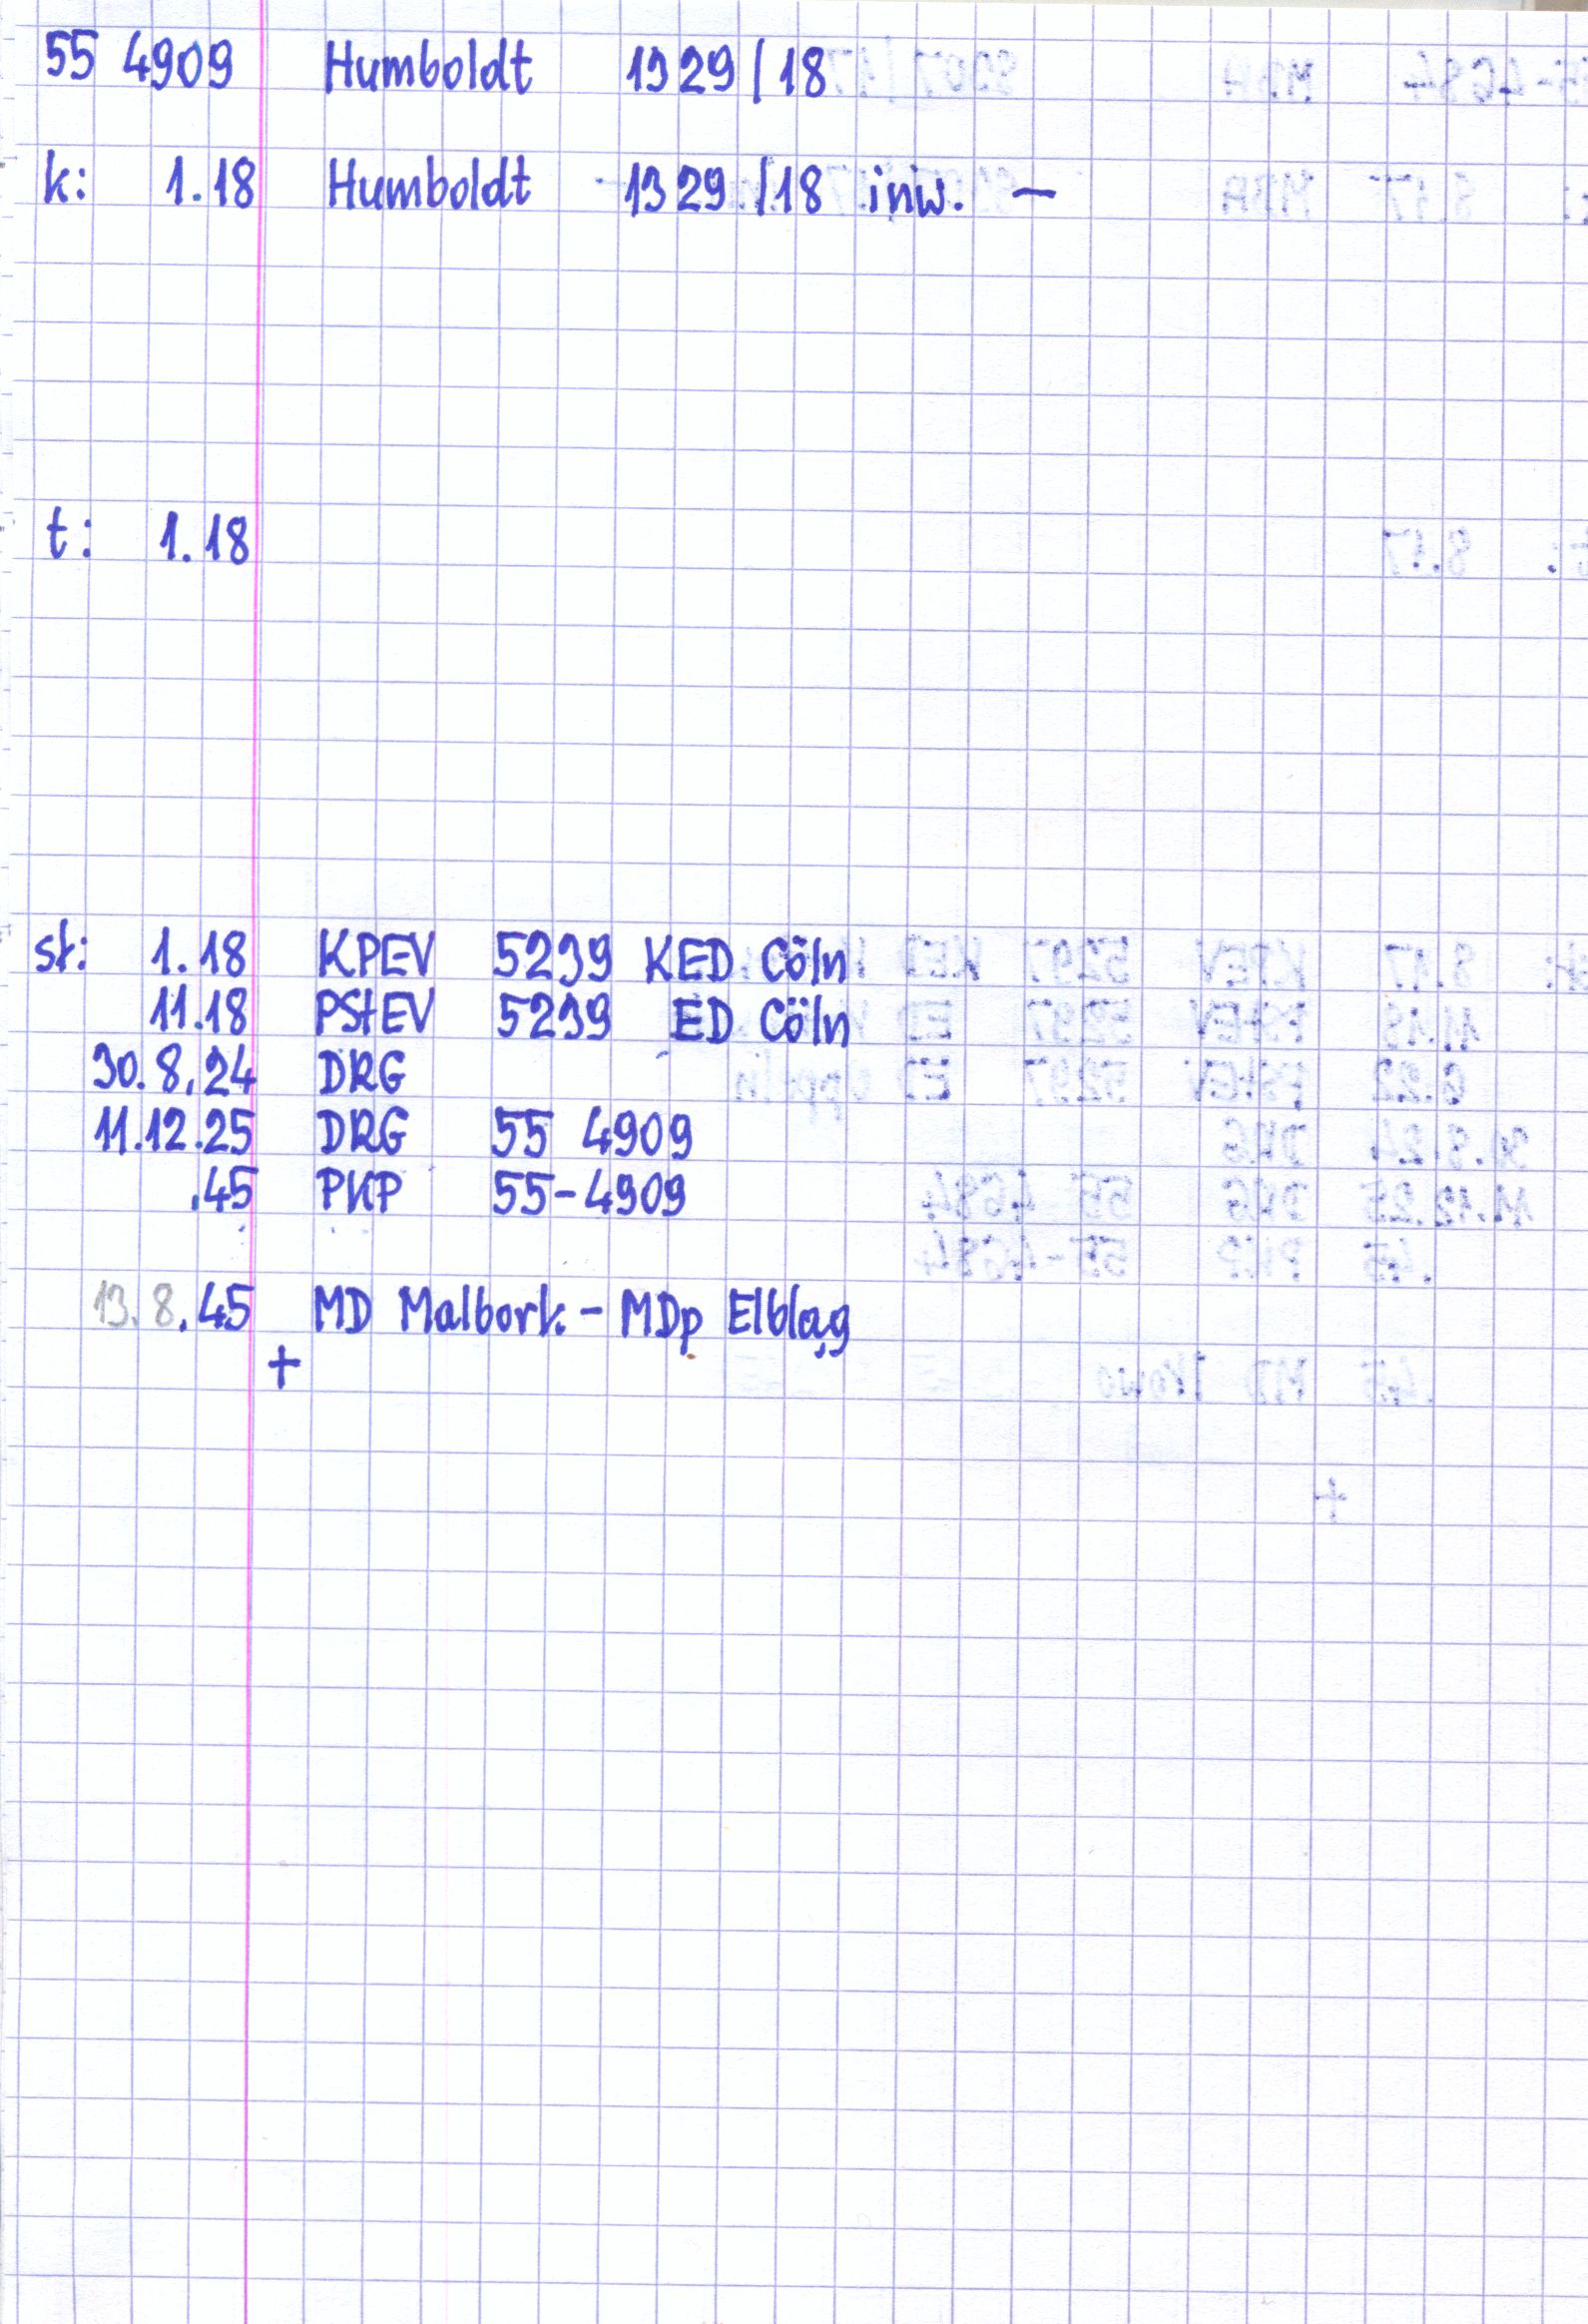 55 4909 Humboldt 1329/18
k: 1.18 Humboldt 1329/18 inw. –
t: 1.18
st: 1.18 KPEV 5239 KED Cöln
11.18 PStEV 5239 ED Cöln
30.8.24 DRG
11.12.25 DRG 55 4909
.45 PKP 55-4909
13.8.45 MD Malbork - MDp Elbląg
+